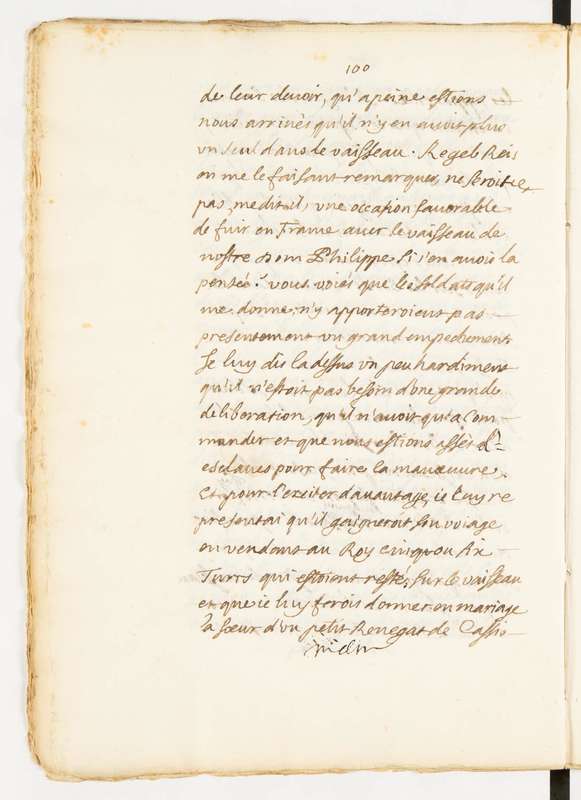 100
de leur devoir, qu'a peine estions
nous arrivés qu'il n'y en avoit plus
un seul dans le vaisseau. Regeb Reis
en me le faisant remarquer, ne seroit ce
pas, me dit il, une occasion favorable
de fuir en France avec le vaisseau de
nostre Dom Philippe si j'en avois la
pensée? vous voiés que les soldats qu'il
me donne, n'y apporteroient pas
presentement un grand empechement
Je luy dis la dessus un peu hardiment
qu'il n'estoit pas besoin d'une grande
deliberation, qu'il n'avoit qu'a com
mander et que nous estions assés d'
esclaves pour faire la manœuvre,
et pour l'exciter davantage, ie luy re
presentai qu'il gaigneroit son voiage
en vendant au Roy cinq ou six
Turcs qui estoient restés sur le vaisseau
et que ie luy ferois donner en mariage
la sœur d'un petit Renegat de Cassis